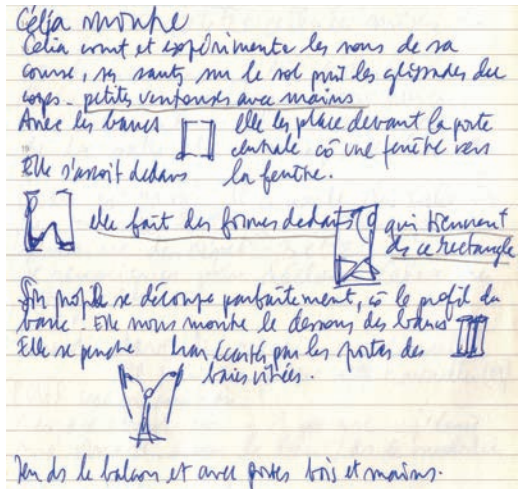 Célia montre
Celia court et expérimente les sons de sa
course, ses sauts sur le sol puis les glissades du
corps - petites ventouses avec mains
Avec les bancs elle les place devant la porte
centrale cô une fenêtre vers
Elle s'assoit dedans la fenêtre.
elle fait des formes dedans qui tiennent
ds ce rectangle
Son profil se découpe parfaitement, cô le profil du
banc. Elle nous montre le dessous des bancs
Elle se penche bras écartés par les portes des
baies vitrées.
Jeu ds le balcon et avec portes bois et mains.